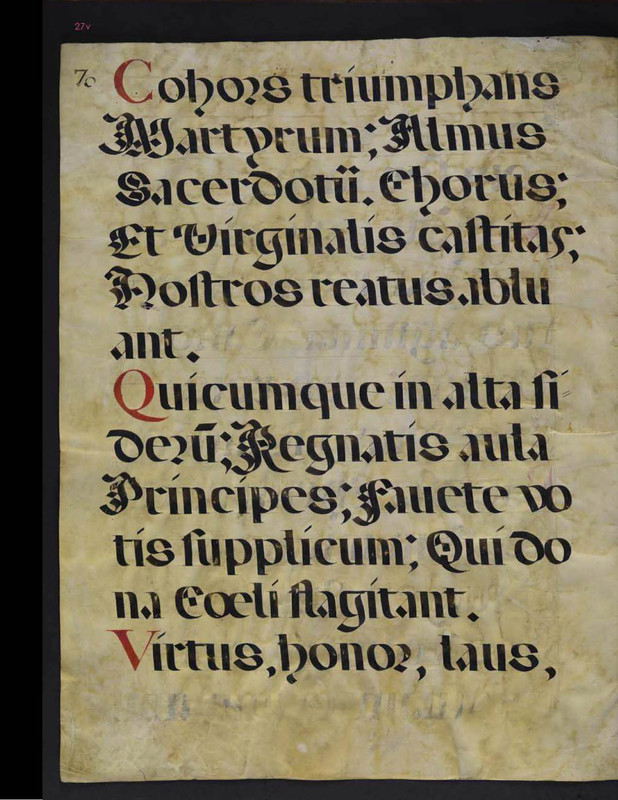 27v
70
Cohors triumphans
Martyrum; Almus
Sacerdotũ. Chorus;
Et Virginalis caſtitas;
Noſtros reatus ablu
ant.
Quicumque in alta ſi=
derũ; Regnatis aula
Principes; Fauete vo
tis ſupplicum; Qui do
na Coeli flagitant.
Virtus, honor, laus,